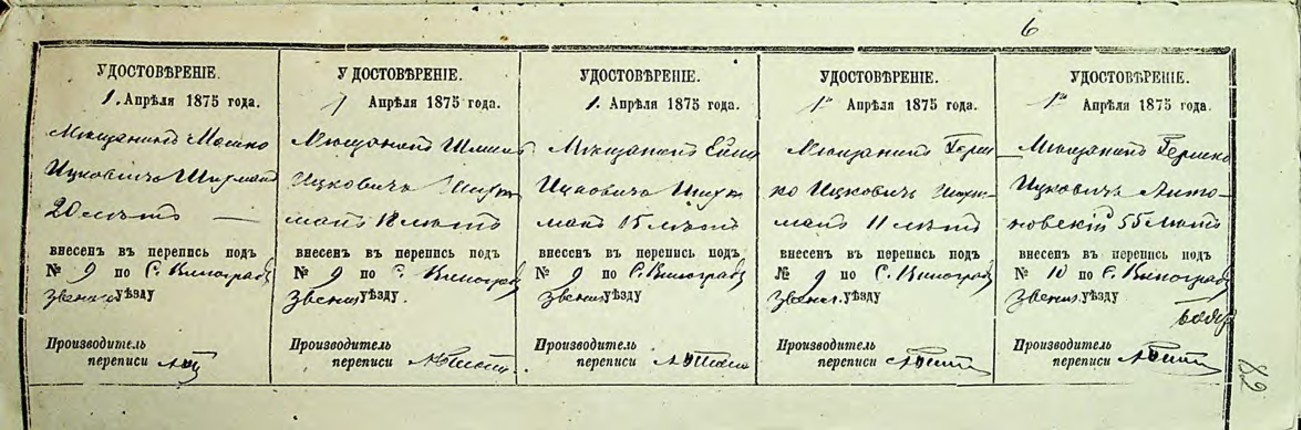 6
УДОСТОВѢРЕНІЕ.
1. Апрѣля 1875 года.
Мѣщанинъ Мошко
Ицковичъ
20 лѣтъ —
внесенъ въ перепись подъ
№ 9 по С. Виноградъ
уѣзду
Производитель
переписи
УДОСТОВѢРЕНІЕ.
1 Апрѣля 1875 года.
Мѣщанинъ
Ицковичъ
18 лѣтъ
внесенъ въ перепись подъ
№ 9 по С. Виноградъ
Звениг. уѣзду.
Производитель
переписи
УДОСТОВѢРЕНІЕ.
1. Апрѣля 1875 года.
Мѣщанинъ
Ицковичъ
15 лѣтъ
внесенъ въ перепись подъ
№ 9 по С. Виноградъ
Звениг. уѣзду
Производитель
переписи
УДОСТОВѢРЕНІЕ.
1го Апрѣля 1875 года.
Мѣщанинъ Герш
ко Ицковичъ
11 лѣтъ
внесенъ въ перепись подъ
№ 9 по С. Виноградъ
Звениг. уѣзду
Производитель
переписи
УДОСТОВѢРЕНІЕ.
1го Апрѣля 1875 года.
Мѣщанинъ Гершко
Ицковичъ Анто
новскій 55 лѣтъ
внесенъ въ перепись подъ
№ 10 по С. Виноградъ
Звениг. уѣзду
Производитель
переписи
82